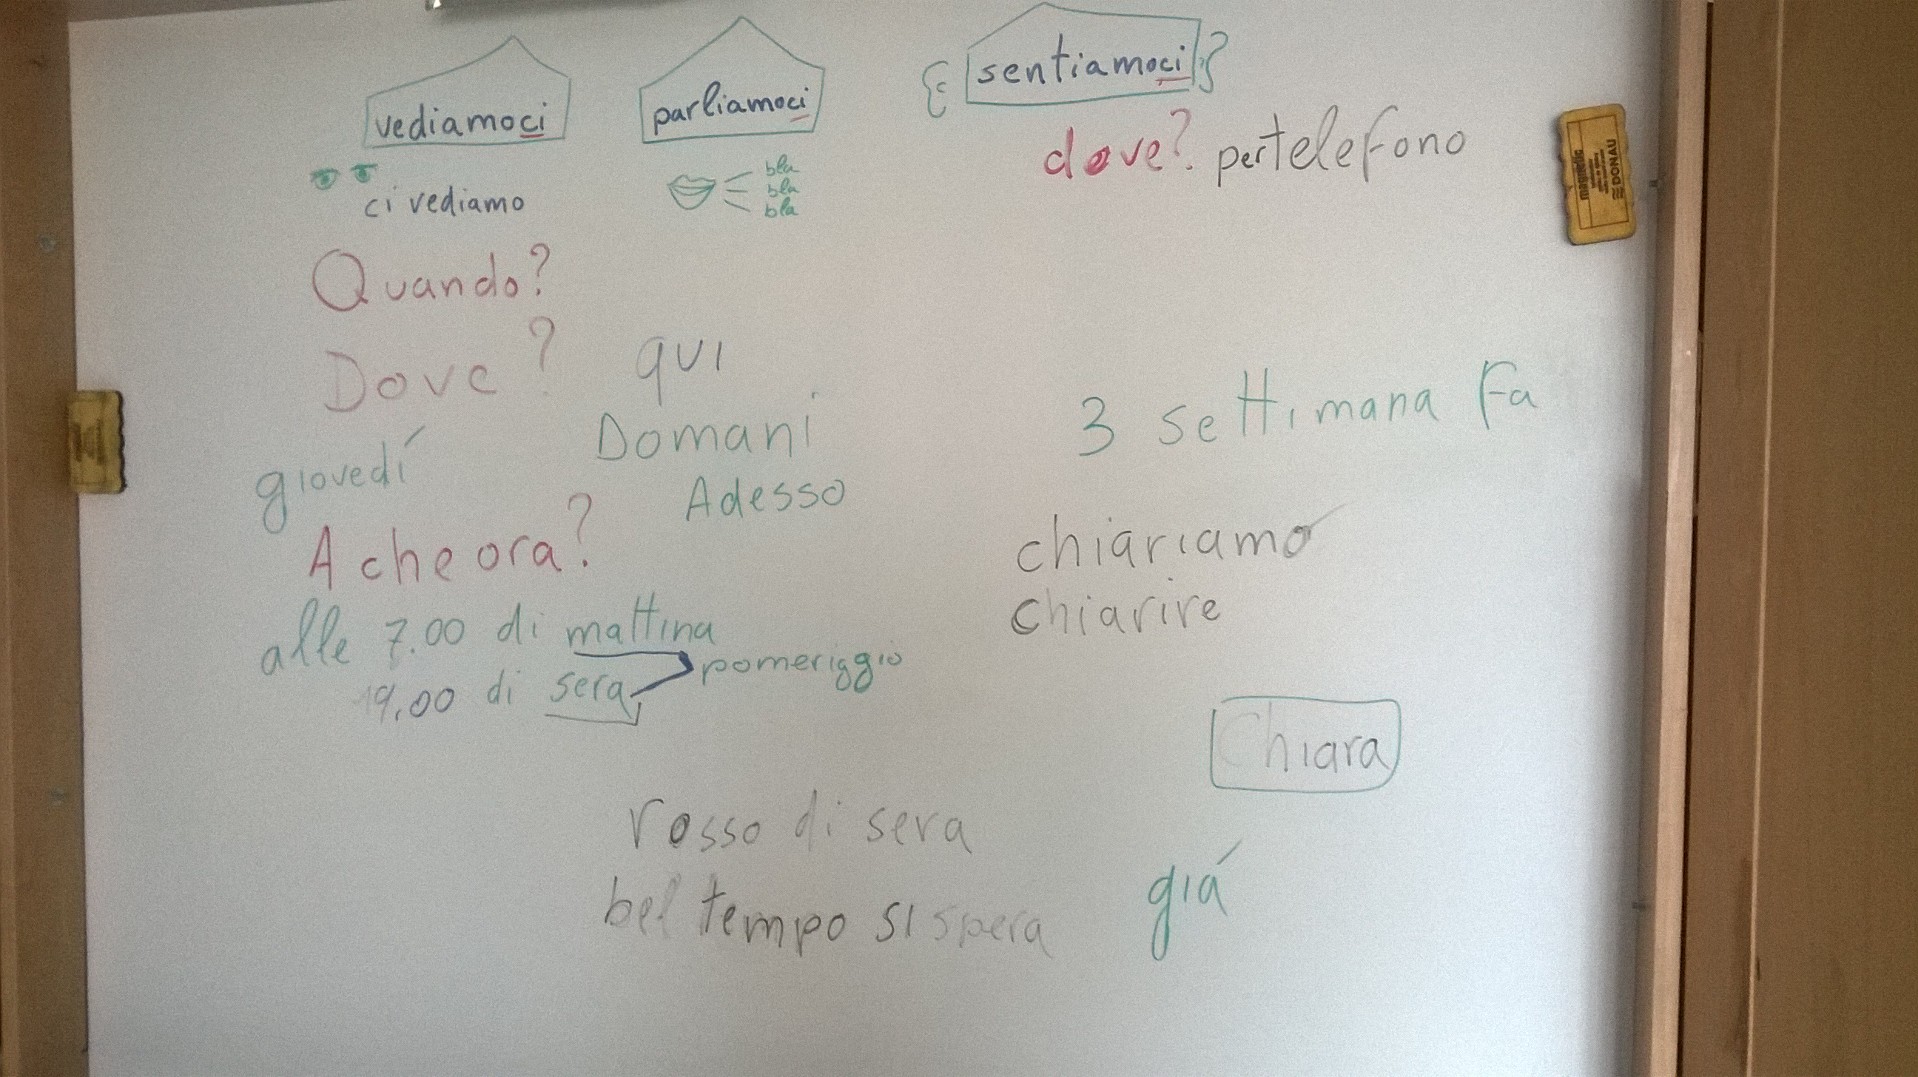 vediamoci
parliamoci
{ sentiamoci }
dove? per telefono
bla
bla
bla
ci vediamo
Quando?
Dove? qui
Domani
3 settimana fa
giovedí
Adesso
A che ora?
chiariamo
chiarire
alle 7.00 di mattina
pomeriggio
19.00 di sera
Chiara
rosso di sera
bel tempo si spera
giá
magnetic
DONAU